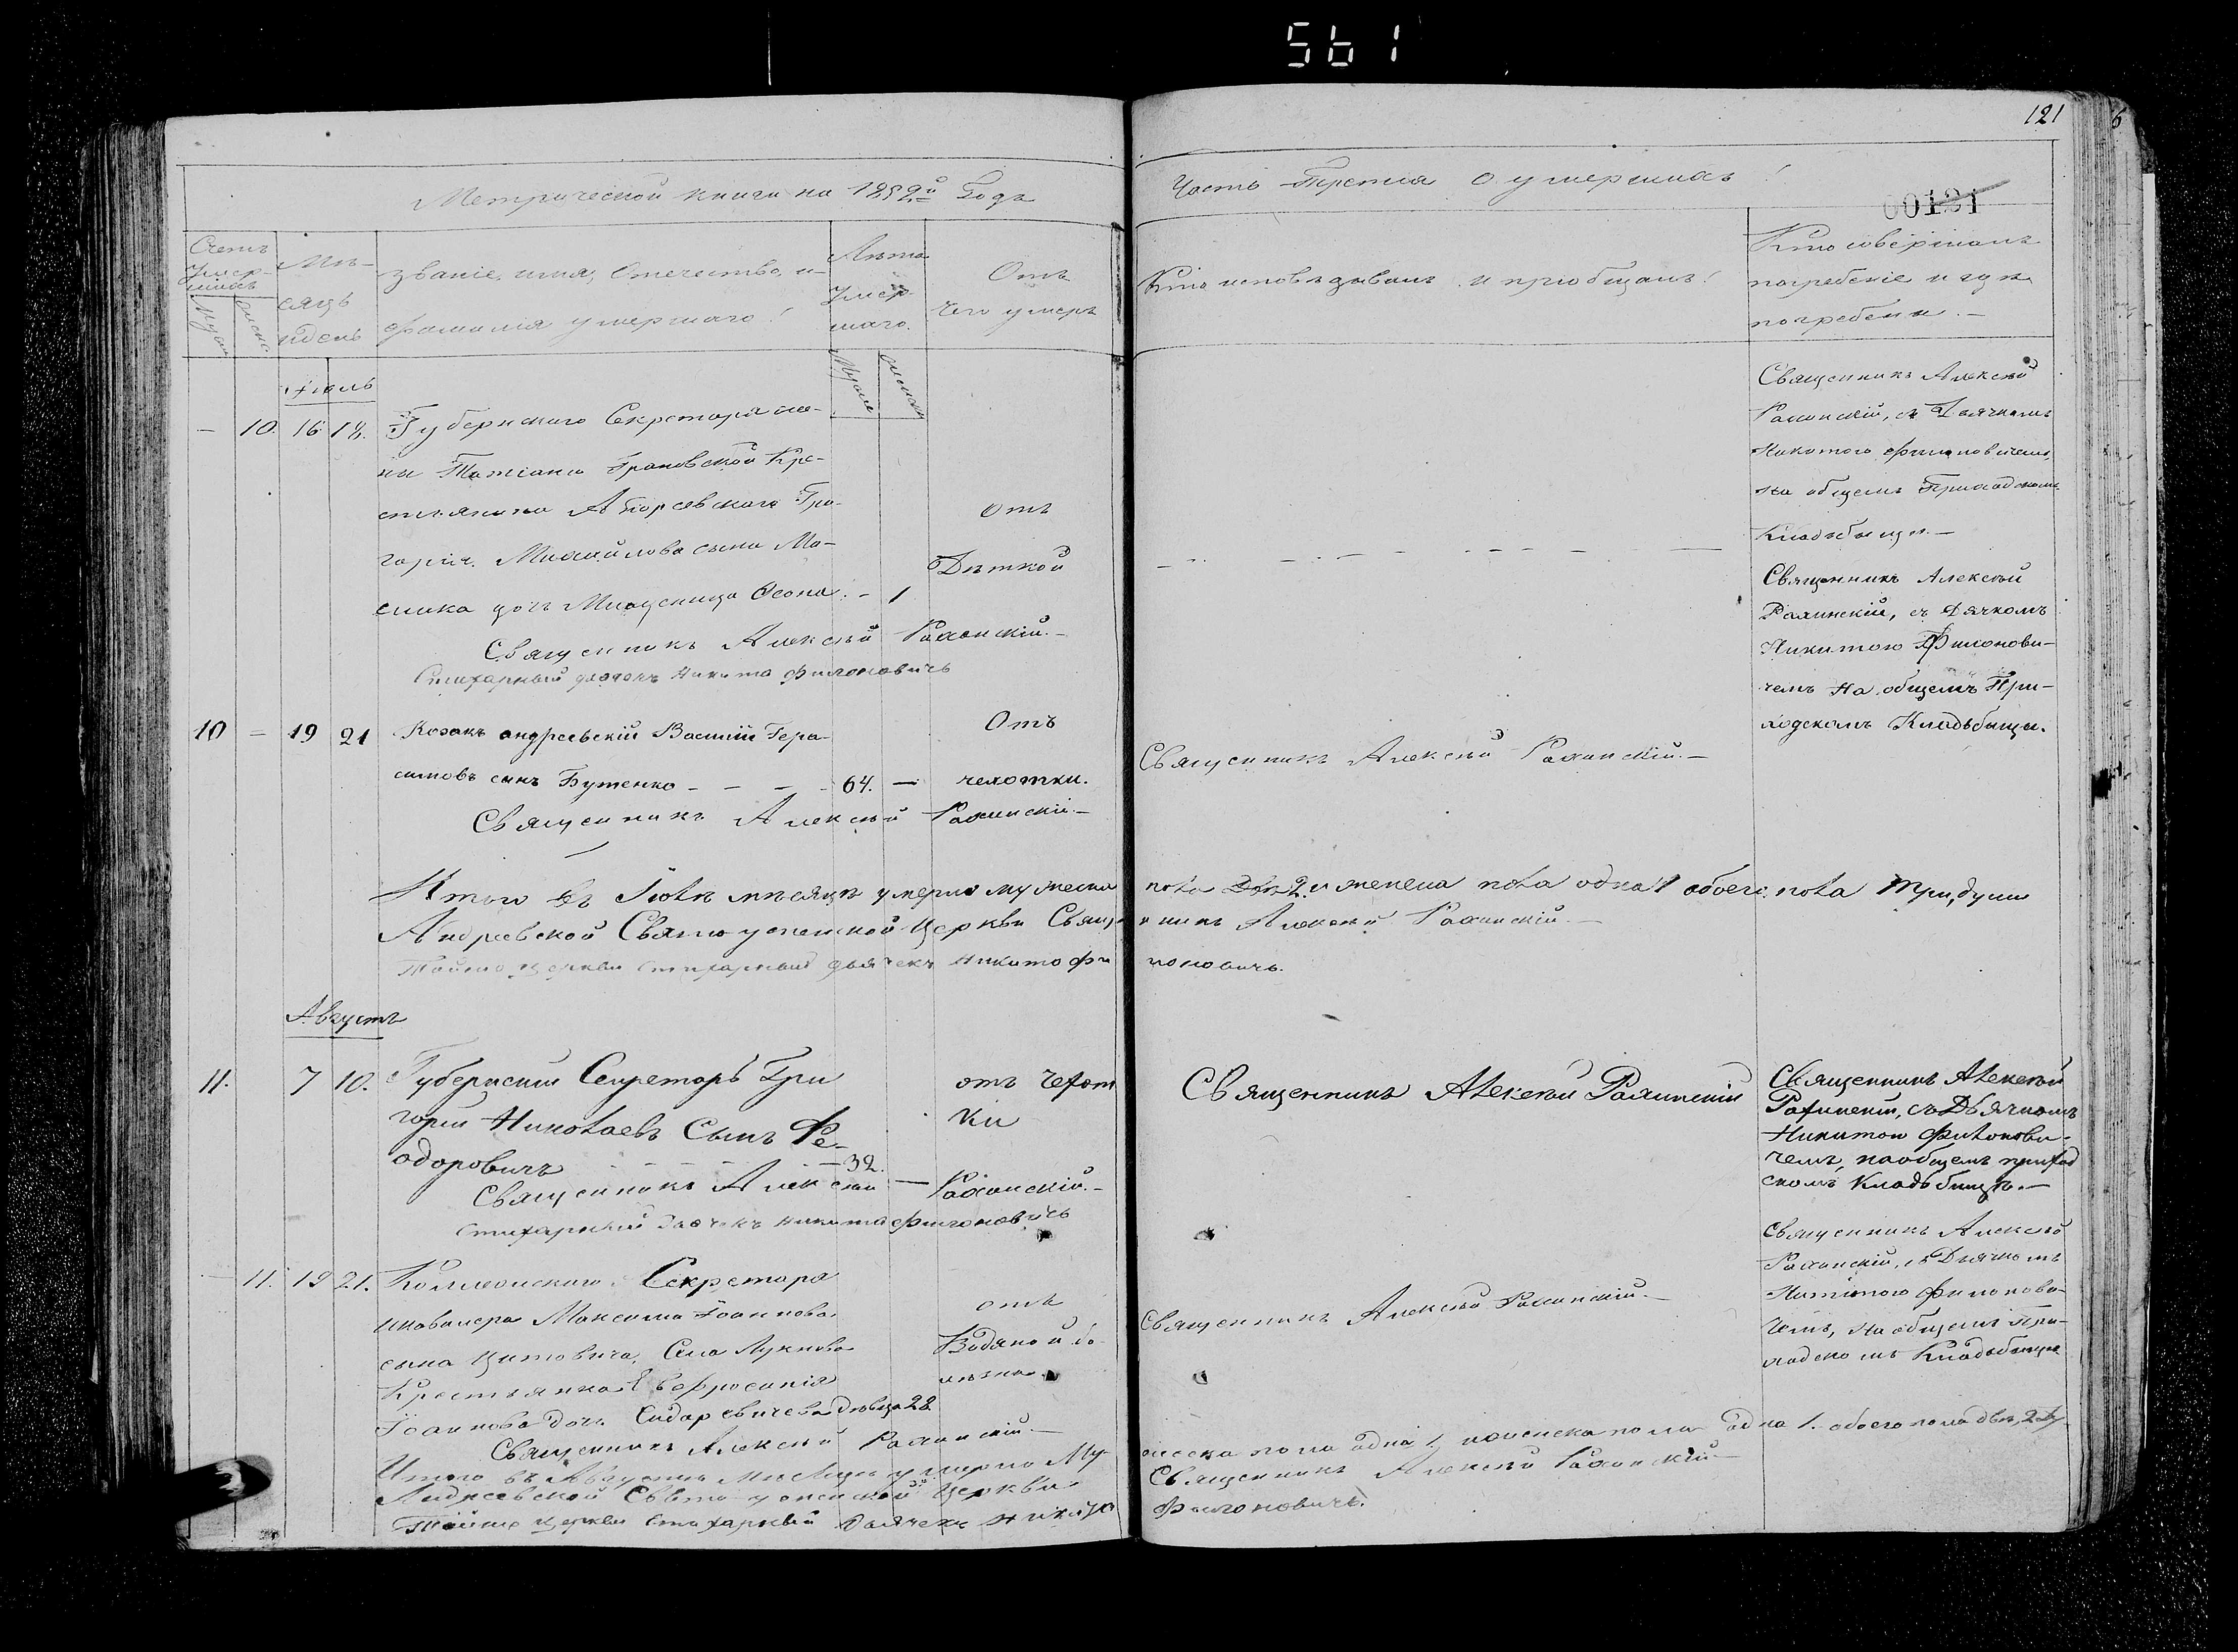 561
121
6
00121
Метрической книги на 1852й Года
Часть Третія о умершихъ!
Счетъ Умершихъ
Мужес
Женс
Мѣсяцъ и день
званіе, имя, Отечество, и
фамилія умершаго!
Лѣта Умершаго.
Мужес
женска
Отъ
чего умеръ
Кто исповѣдывалъ и пріобщалъ!
Кто совершалъ
погребеніе и гдѣ
погребены. —
Іюль
— 10. 16 18. Губернскаго Секретаря же-
ны Татіаны Грановской Кре-
стьянина Андреевскаго Гри-
горія Михайлова сына Мо-
сника дочь Младеница Ѳеона. - 1
Отъ
Дѣткой
Священникъ Алексѣй
Рахинскій, съ Дьячкомъ
Никитою Филоновичемъ,
на общемъ Приходскомъ
Кладбищи. —
Священникъ Алексѣй Рахинскій. —
Стихарный дьячокъ Никита Филоновичъ
10 — 19 21 Козакъ андреевскій Василій Гера-
симовъ сынъ Бутенко - - - - 64. —
Отъ
чехотки.
Священникъ Алексѣй Рахинскій. —
Священникъ Алексѣй
Рахинскій, съ Дячкомъ
Никитою Филонови-
чемъ на общемъ При-
ходскомъ Кладьбищи.
Священникъ Алексѣй Рахинскій —
Итого въ Іюлѣ мѣсяцѣ умерло мужеска пола 2. и женска пола одна 1 обоего пола три, души
Андреевской Свято успенской Церкви Священникъ Алексѣй Рахинскій. —
Тойже церкви стихарный дьячекъ Никита Филоновичъ.
Августъ
11. 7 10. Губернскій Секретарь Гри
горій Николаевъ Сынъ Фе-
одоровичъ - - - - 32.
отъ чехот
ки
Священникъ Алексѣй Рахинскій
Священникъ Алексѣй
Рахинскій, съ Дьячкомъ
Никитою Филонови-
чемъ, на общемъ приход
скомъ Кладбищѣ. —
Священникъ Алексѣй — Рахинскій. —
Стихарный дьячекъ Никита Филоновичъ
11. 19 21. Коллежскаго Секретаря
икавалера Максима Іоаннова
сына Цитовича, Села Лукнова
Крестьянка Евфросинія
Іоаннова дочь Сидоревичева дѣвица 28
отъ
Водяной бо-
лѣзни.
Священникъ Алексѣй Рахинскій. —
Священникъ Алексѣй
Рахинскій, съ Дьячкомъ
Никитою Филонови-
чемъ, на общемъ При-
ходскомъ Кладбищѣ
Священникъ Алексѣй Рахинскій —
Итого въ Августѣ Мѣсяцѣ умерло Мужеска пола одна 1. и женска пола одна 1. обоего пола двѣ, 2
Андреевской Свято успенской Церкви Священникъ Алексѣй Рахинскій —
Тойже церкви Стихарный дьячекъ Никита Филоновичъ.